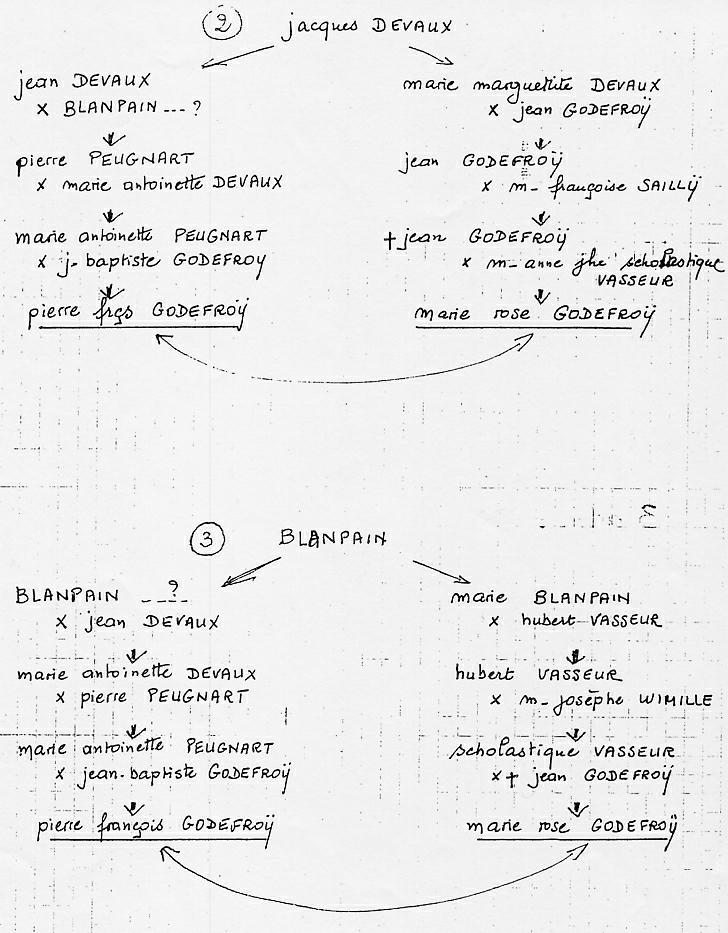 2 jacques DEVAUX
jean DEVAUX
x BLANPAIN ---?
pierre PEUGNART
x marie antoinette DEVAUX
marie antoinette PEUGNART
x j- baptiste GODEFROY
pierre frçs GODEFROŸ
marie marguerite DEVAUX
x jean GODEFROŸ
jean GODEFROŸ
x m- françoise SAILLŸ
+jean GODEFROŸ
x m- anne jhe scholastique
VASSEUR
marie rose GODEFROŸ
3 BLANPAIN
BLANPAIN ---?
x jean DEVAUX
marie antoinette DEVAUX
x pierre PEUGNART
marie antoinette PEUGNART
x jean-baptiste GODEFROŸ
pierre françois GODEFROŸ
marie BLANPAIN
x hubert VASSEUR
hubert VASSEUR
x m- josèphe WIMILLE
scholastique VASSEUR
x+ jean GODEFROŸ
marie rose GODEFROŸ